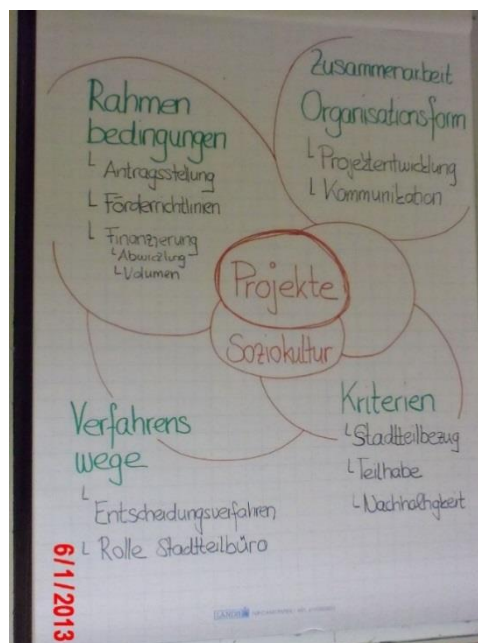 Rahmen
bedingungen
└ Antragsstellung
└ Förderrichtlinien
└ Finanzierung
└ Abwicklung
└ Volumen
Zusammenarbeit
Organisationsform
└ Projektentwicklung
└ Kommunikation
Projekte
Soziokultur
Verfahrens
wege
└
Entscheidungsverfahren
└ Rolle Stadtteilbüro
Kriterien
└ Stadtteilbezug
└ Teilhabe
└ Nachhaltigkeit
6/1/2013
LANDRÉ